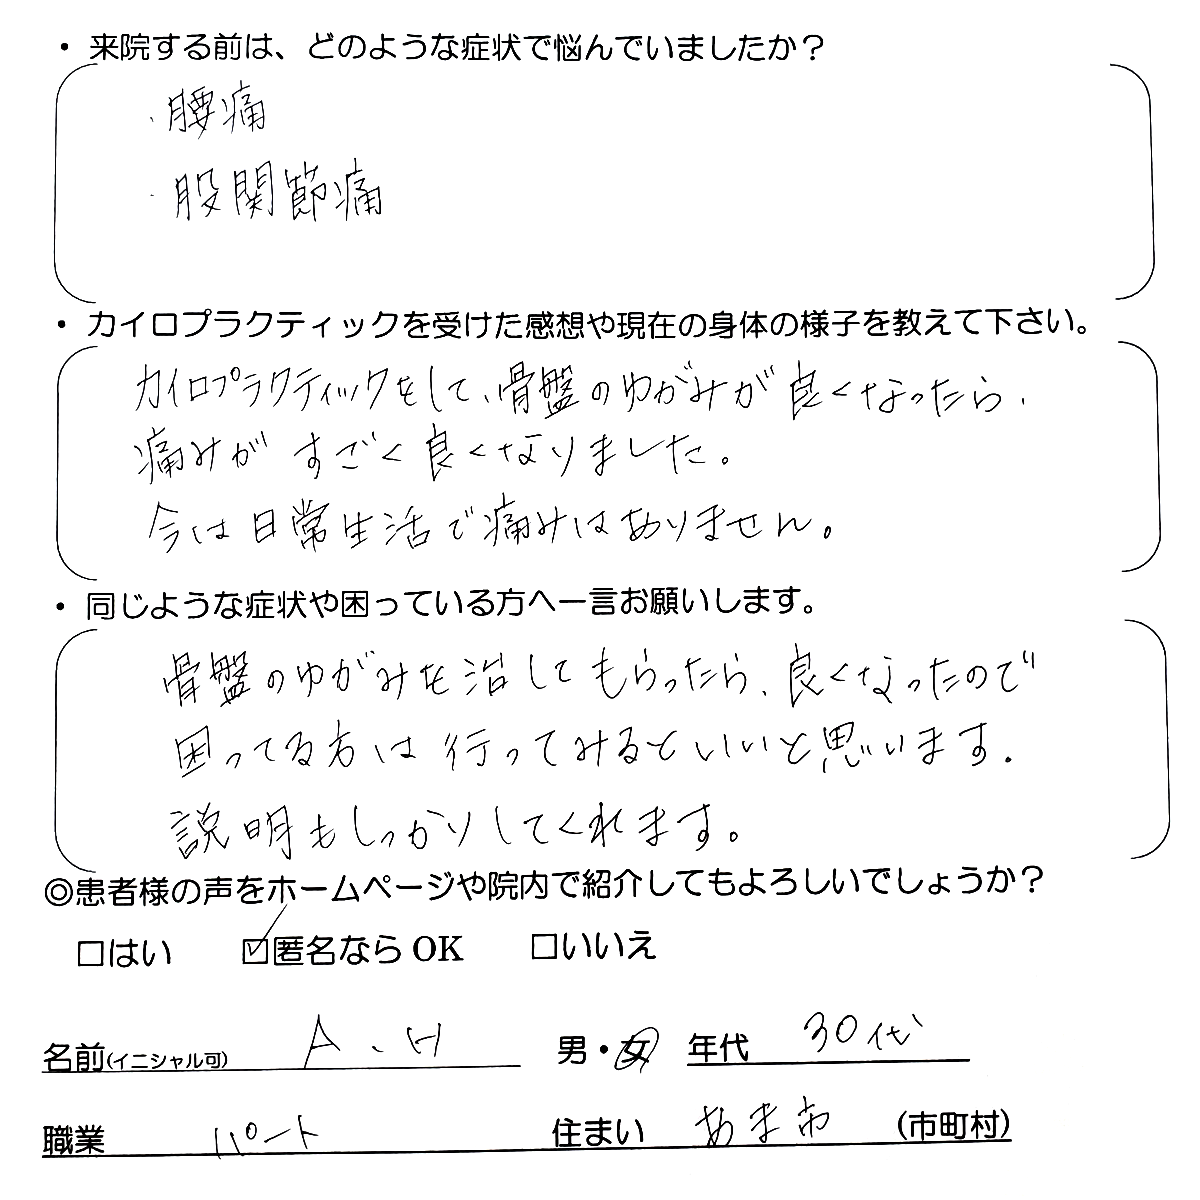 ・来院する前は、どのような症状で悩んでいましたか？
・腰痛
・股関節痛
・カイロプラクティックを受けた感想や現在の身体の様子を教えて下さい。
カイロプラクティックをして、骨盤のゆがみが良くなったら、
痛みがすごく良くなりました。
今は日常生活で痛みはありません。
・同じような症状や困っている方へ一言お願いします。
骨盤のゆがみを治してもらったら、良くなったので
困ってる方は行ってみるといいと思います.
説明もしっかりしてくれます。
◎患者様の声をホームページや院内で紹介してもよろしいでしょうか？
□はい ☑匿名ならOK □いいえ
名前(イニシャル可) A、H 男・女 年代 30代
職業 パート 住まい あま市 (市町村)